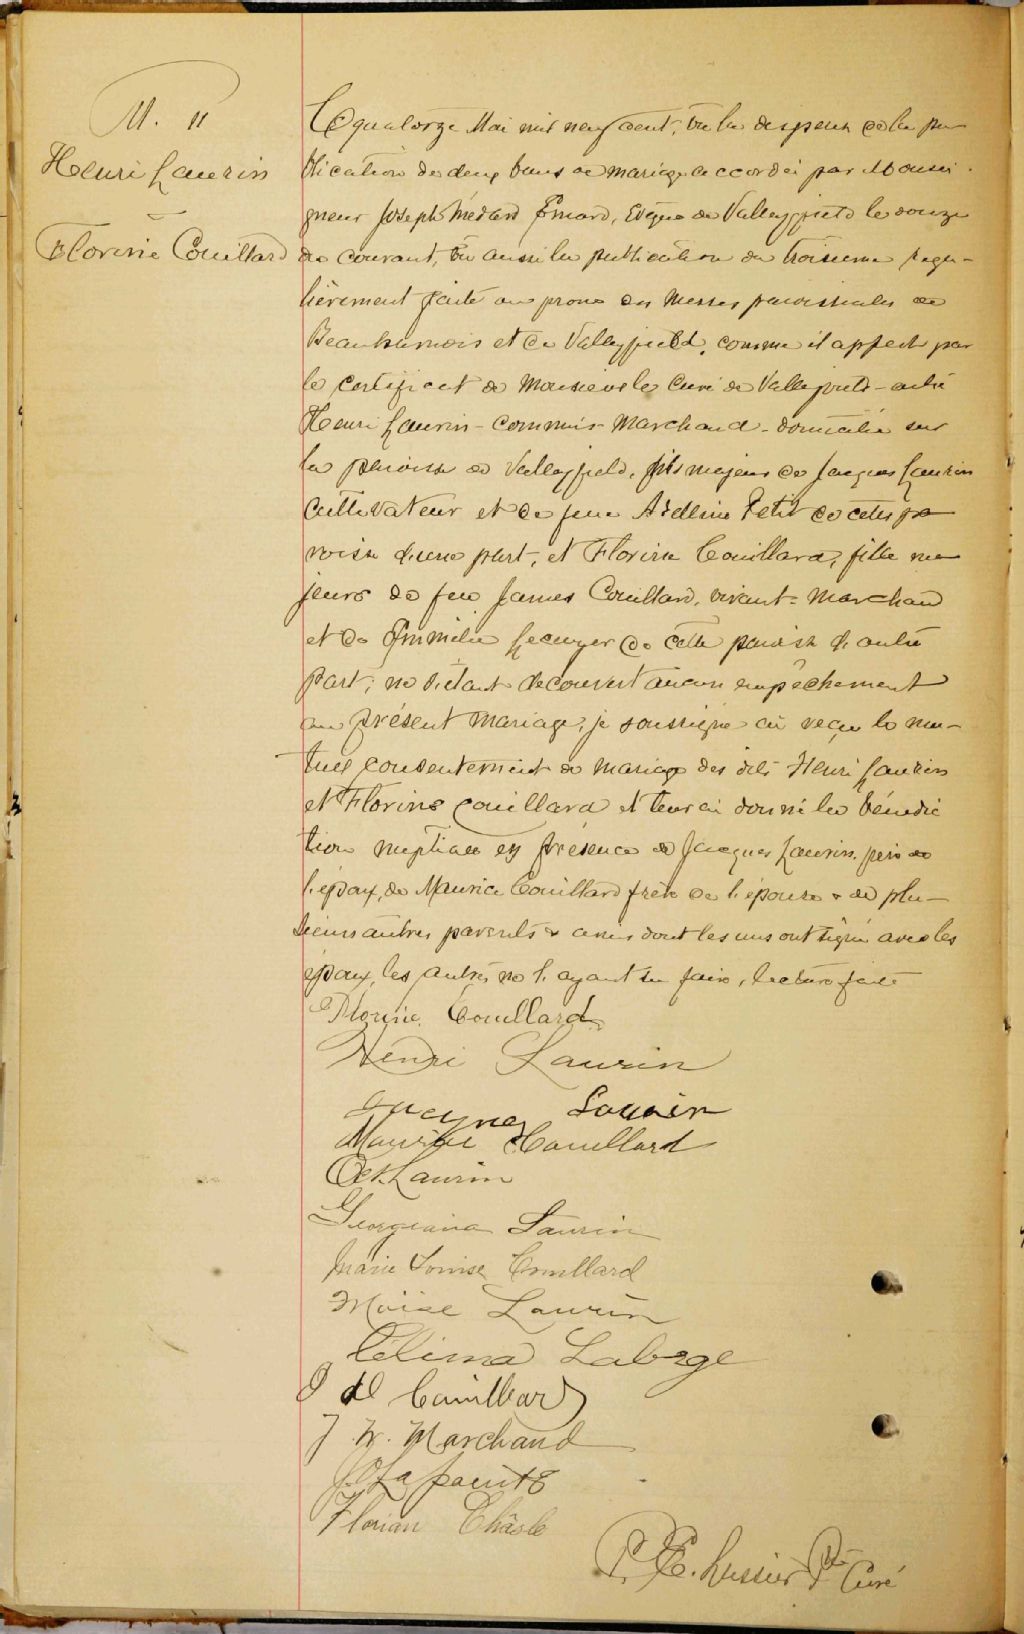 M. 11
Henri Laurin
Florine Couillard
Le quatorze Mai mil neuf cent, vu la dispense de la pu
blication de deux bans de mariage accordée par Monsei
gneur Joseph Médard Émard, Evêque de Valleyfield le douze
du courant, vu aussi la publication du troisième régu-
lièrement faite au prone des Messes paroissiales de
Beauharnois et de Valleyfield, comme il appert par
le certificat de Monsieur le Curé de Valleyfield - entre
Henri Laurin - Commis-Marchand - domicilié sur
la paroisse de Valleyfield, fils majeur de Jacques Laurin
Cultivateur et de feue Adeline Petit de cette pa
roisse d'une part, et Florine Couillard, fille ma
jeure de feu James Couillard, vivant Marchand
et de Emmélie Lecuyer de cette paroisse d'autre
part; ne s'étant découvert aucun empêchement
au présent mariage, je soussigné ai reçu le mu-
tuel consentement de mariage des dits Henri Laurin
et Florine Couillard et leur ai donné la bénédic
tion nuptiale en présence de Jacques Laurin père de
l'époux, de Maurice Couillard frère de l'épouse & de plu-
sieurs autres parents & amis dont les uns ont signé avec les
époux, les autres ne l'ayant su faire, lecture faite
Florine Couillard
Henri Laurin
Jacques Laurin
Maurice Couillard
Laurin
Georgeana Laurin
Marie Louise Couillard
Moïse Laurin
Célima Laberge
Couillard
J. W. Marchand
Florian Chasle
P. E. Lussier Ptre Curé